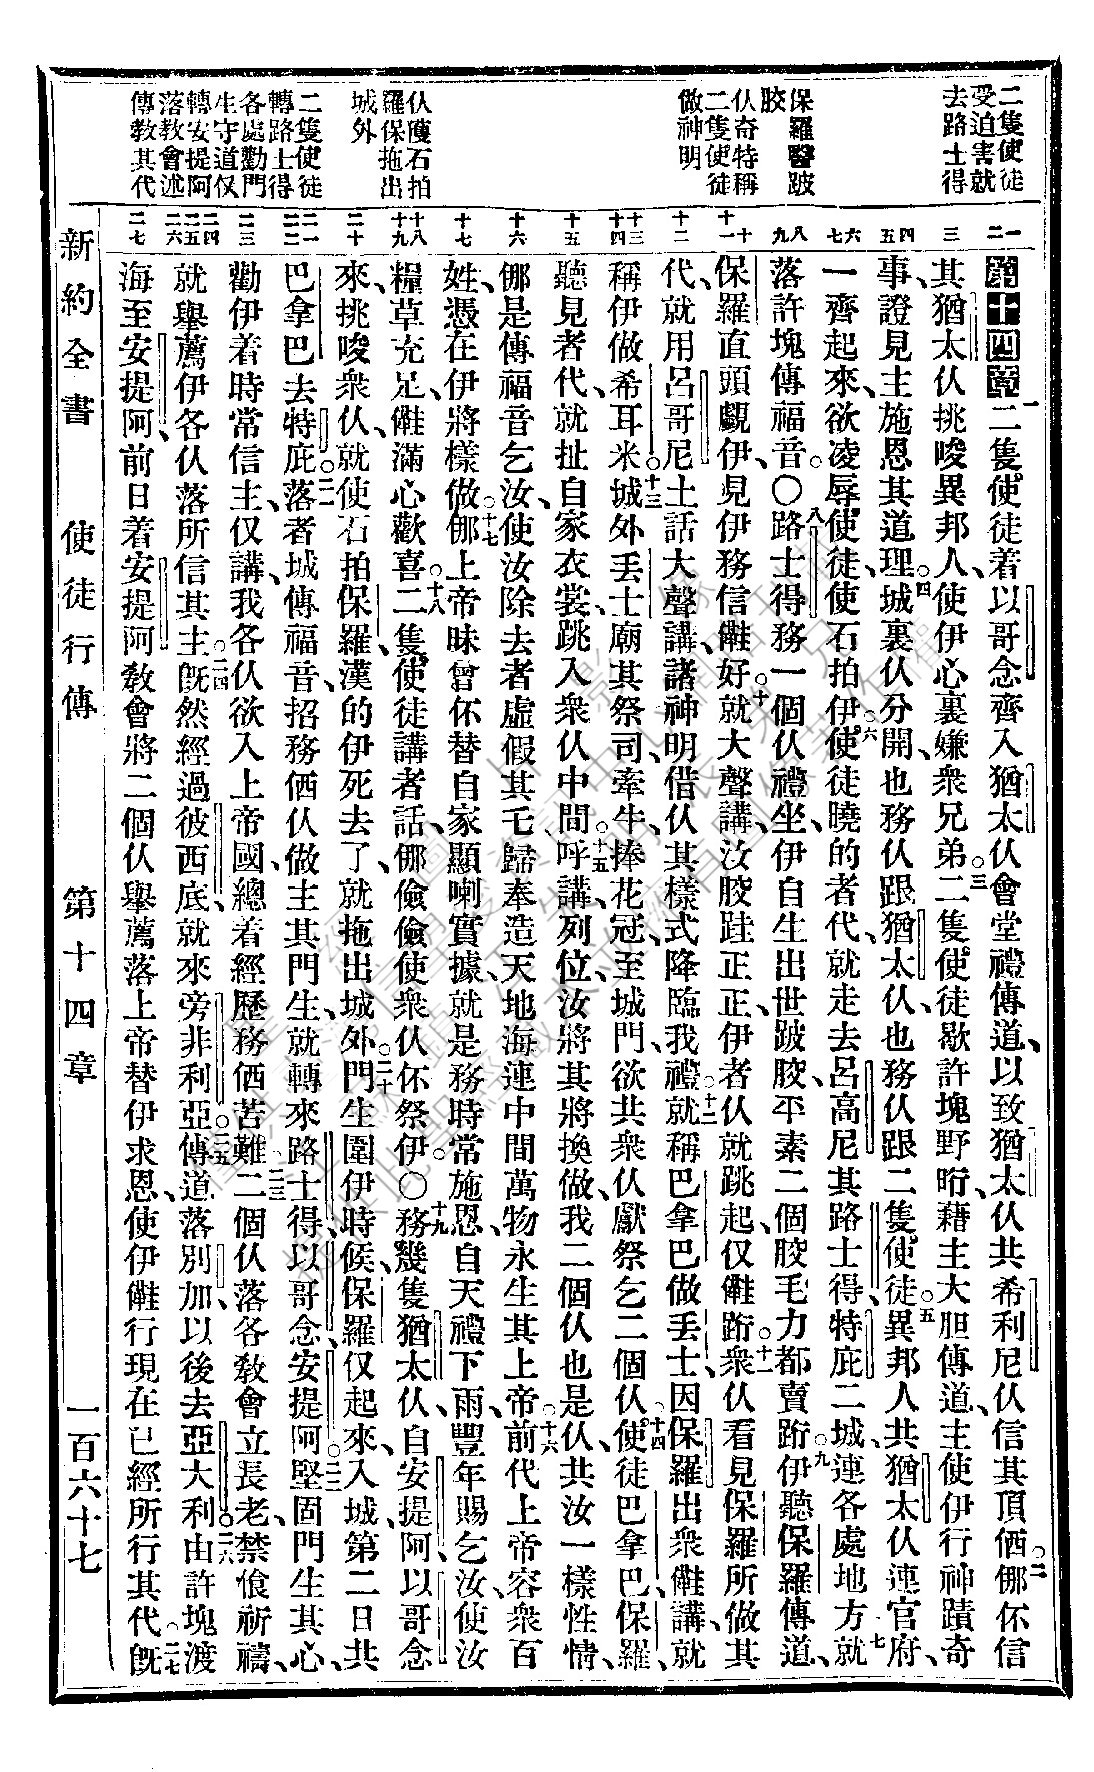 二隻使徒
受迫害就
去路士得
保羅醫跛
胶
仫奇特稱
二隻使徒
做神明
仫獲石拍
羅保拖出
城外
二隻使徒
轉路士得
各處勸門
生守道仅
轉安提阿
落教會述
傳教其代
第十四章一二隻使徒着以哥念齊入猶太仫會堂禮傳道、以致猶太仫共希利尼仫信其頂侕𠆧伓信二
其猶太仫挑唆異邦人、使伊心裏嫌衆兄弟三二隻使徒歇許塊野𣍐藉主大胆傳道、主使伊行神蹟奇
事、證見主施恩其道理四城裏仫分開也務仫跟猶太仫也務仫跟二隻使徒五異邦人共猶太仫連官府、
一齊起來、欲凌辱使徒、使石拍伊六使徒曉的者代、就走去呂高尼其路士得、特庇二城、連各處地方七就
落許塊傳福音〇八路士得務一個仫禮坐、伊自生出世跛胶、平素二個胶毛力都賣跡九伊聽保羅傳道、
保羅直頭覷伊、見伊務信𠆧好十就大聲講、汝胶跬正正、伊者仫就跳起、仅𠆧跡十一衆仫看見保羅所做其
代、就用呂哥尼土話大聲講、諸神明借仫其樣式降臨我禮十二就稱巴拿巴做丢士、因保羅出衆𠆧講、就
稱伊做希耳米十三城外丢士廟其祭司、牽牛、捧花冠、至城門、欲共衆仫獻祭乞二個仫十四使徒巴拿巴、保羅、
聽見者代、就扯自家衣裳、跳入衆仫中間十五呼講、列位、汝將其將換做、我二個仫也是仫、共汝一樣性情、
𠆧是傳福音乞汝、使汝除去者虛假其乇、歸奉造天地海連中間萬物永生其上帝十六前代上帝、容衆百
姓、憑在伊將樣做十七𠆧上帝昧曾伓替自家顯喇實據、就是務時常施恩、自天禮下雨、豐年賜乞汝、使汝
糧草充足、𠆧滿心歡喜十八二隻使徒講者話、𠆧儉儉使衆仫伓祭伊〇十九務幾隻猶太仫、自安提阿以哥念
來、挑唆衆仫、就使石拍保羅、漢的伊死去了、就拖出城外二十門生圍伊時候、保羅仅起來、入城、第二日共
巴拿巴去特庇二一落者城傳福音、招務侕仫做主其門生、就轉來路士得、以哥念、安提阿二二堅固門生其心、
勸伊着時常信主、仅講、我各仫欲入上帝國、總着經歷務侕苦難二三二個仫落各教會立長老、禁飡祈禱、
就舉薦伊各仫落所信其主二四旣然經過彼西底、就來旁非利亞二五傳道落別加、以後去亞大利二六由許塊渡
海至安提阿、前日着安提阿教會將二個仫舉薦落上帝替伊求恩、使伊𠆧行現在已經所行其代二七旣
新約全書　使徒行傳　第十四章　一百六十七